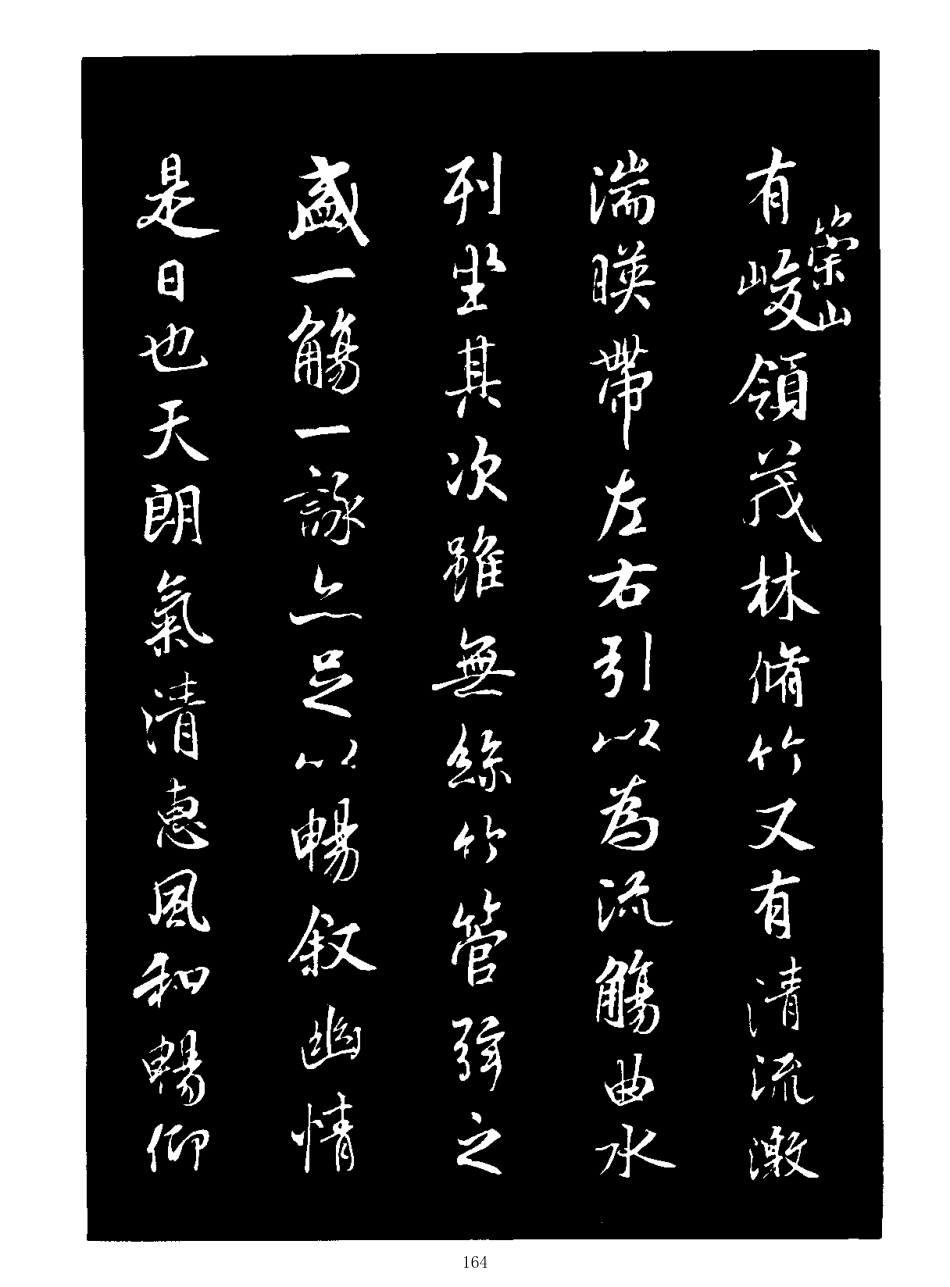 有崇山峻領茂林脩竹又有清流激
湍暎帶左右引以為流觴曲水
列坐其次雖無絲竹管弦之
盛一觴一詠亦足以暢叙幽情
是日也天朗氣清惠風和暢仰
164